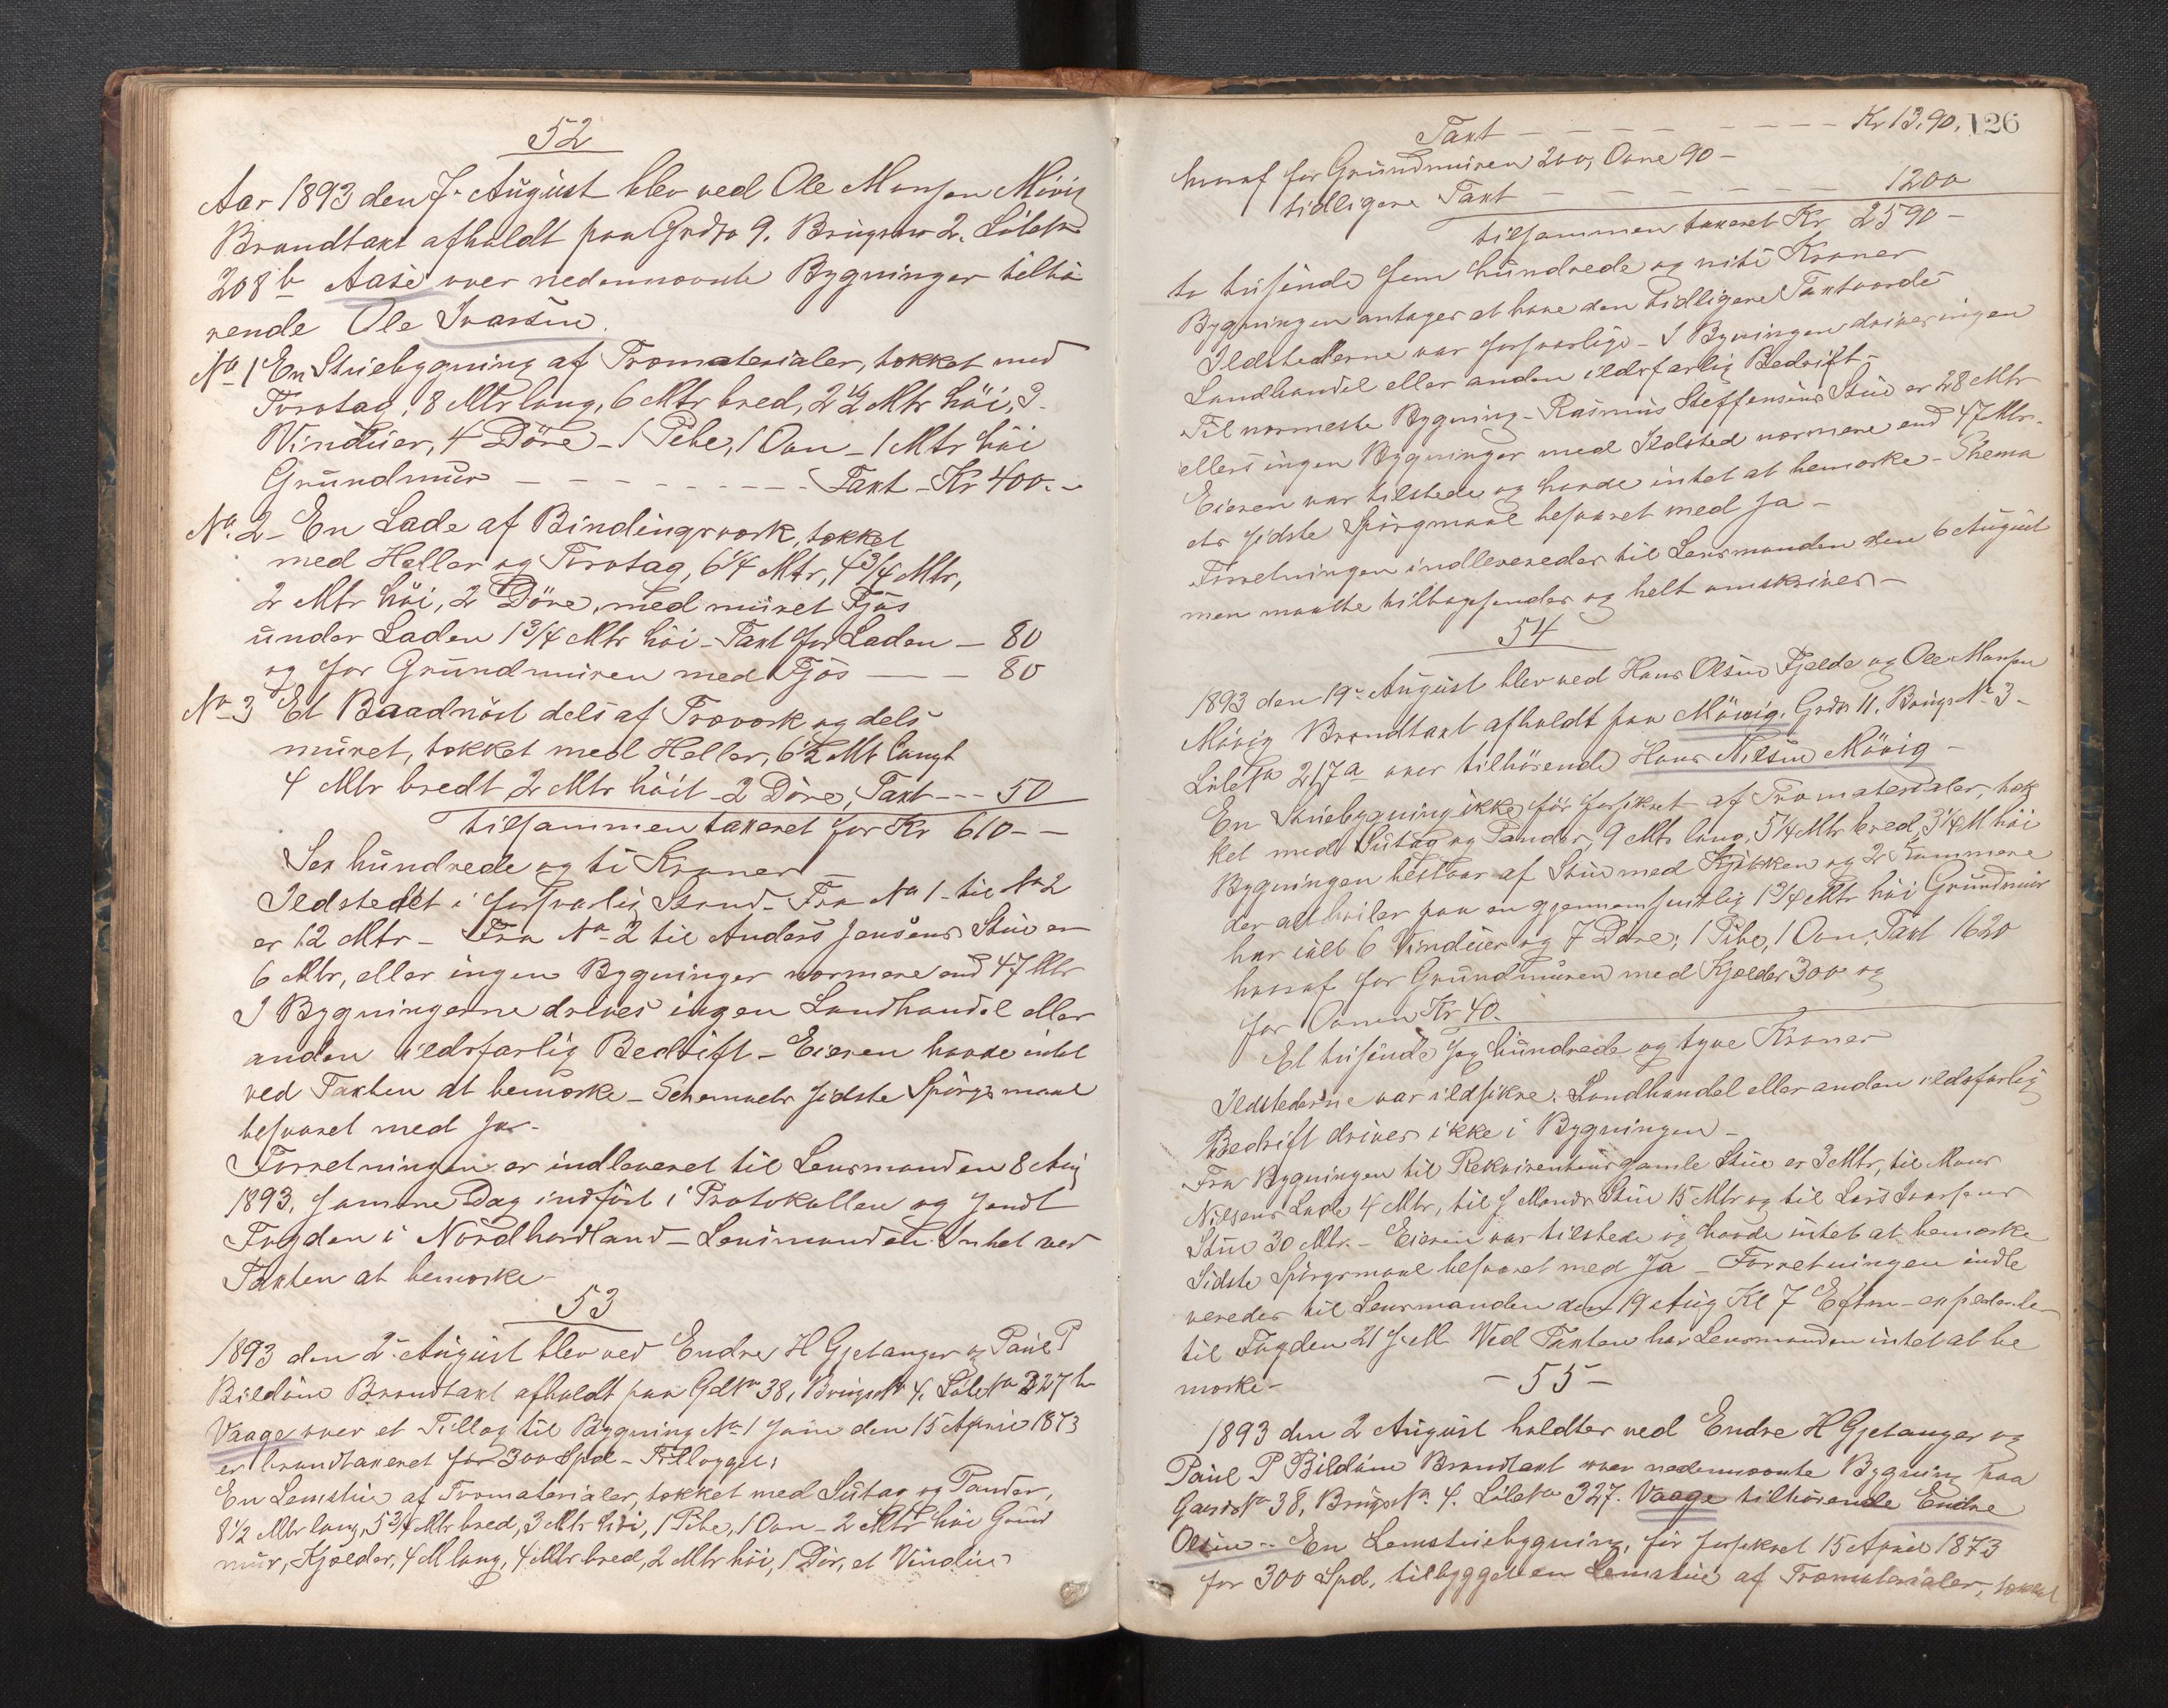 52
Aar 1893 den 7. August blev ved Ole Monsen Mövig
Brandtaxt afholdt paa Grdno 9. Brugsno 2. Löbeno
208 b Aase over nedennævnte Bygninger tilhö
rende Ole Ivarsen.
No 1 En Stuebygning af Træmaterialer, tækket med
Torvtag, 8 Mtr lang, 6 Mtr bred, 2 1/2 Mtr höi, 3
Vinduer, 4 Döre - 1 Pibe, 1 Ovn - 1 Mtr höi
Grundmur - - - - - - - - Taxt - Kr 400. -
No. 2 - En Lade af Bindingsværk, tækket
med Heller og Torvtag, 6 1/4 Mtr, 4 3/4 Mtr,
2 Mtr höi, 2 Döre, med muret Fjös
under Laden 1 3/4 Mtr höi - Taxt for Laden - 80
og for Grundmuren med Fjös - - - 80
No 3 Et Baadnöst dels af Træværk og dels
muret, tækket med Heller, 6 1/2 Mtr langt
4 Mtr bredt 2 Mtr höit - 2 Döre, Taxt - - - 50
tilsammen taxeret for Kr 610 - -
Sex hundrede og ti Kroner
Ildstedet i forsvarlig Stand - Fra No 1 - til No 2
er 12 Mtr - Fra No 2 til Anders Jensens Stue er
6 Mtr, eller ingen Bygninger nærmere end 47 Mtr
I Bygningerne drives ingen Landhandel eller
anden ildsfarlig Bedrift - Eieren havde intet
ved Taxten at bemærke - Schemaets sidste Spörgsmaal
besvaret med Ja -
Forretningen er indleveret til Lensmanden 8 Aug
1893, samme Dag indfört i Protokollen og sendt
Fogden i Nordhordland - Lensmanden Intet ved
Taxten at bemærke -
53
1893 den 2. August blev ved Endre H Gjetanger og Paul P
Bildöen Brandtaxt afholdt paa Gdno 38, Brugsno 4. Löbeno 327 b
Vaage over et Tillæg til Bygning No 1 som den 15 April 1873
er brandtaxeret for 300 Spd - Tillægget:
En Lemstue af Træmaterialer, tækket med Sutag og Pander,
8 1/2 Mtr lang, 5 3/4 Mtr bred, 3 Mtr höi, 1 Pibe, 1 Ovn - 2 Mtr höi Grund
mur, Kjælder, 4 M lang, 4 Mtr bred, 2 Mtr höi, 1 Dör, et Vindue
Taxt - - - - - - - - Kr 13,90. 126
hvoraf for Grundmuren 200, Ovne 90 -
tidligere Taxt - - - - - - - 1200
tilsammen taxeret Kr 2590 -
to tusinde fem hundrede og niti Kroner
Bygningen antages at have den tidligere Taxtværdi
Ildstederne var forsvarlige - I Bygningen drives ingen
Landhandel eller anden ildsfarlig Bedrift -
Til nærmeste Bygning - Rasmus Steffensens Stue er 28 Mtr
ellers ingen Bygninger med Ildsted nærmere end 47 Mtr.
Eieren var tilstede og havde intet at bemærke - Shema
ets sidste Spörgmaal besvaret med Ja -
Forretningen indleveredes til Lensmanden den 6 August
men maatte tilbagesendes og helt omskrives -
54
1893 den 19. August blev ved Hans Olsen Fjelde og Ole Monsen
Mövig Brandtaxt afholdt paa Mövig, Grdn 11. Brugs No. 3 -
Löbeno 217 a over tilhörende Hans Nilsen Mövig -
En Stuebygning ikke för forsikret af Træmaterialer, tæk
ket med Sutag og Pander, 9 Mtr lang, 5 1/4 Mtr bred, 3 1/4 M höi
Bygningen bestaar af Stue med Kjökken og 2 Kammere
der alt hviler paa en gjennemsnitlig 1 3/4 Mtr höi Grundmur
har ialt 6 Vinduer og 7 Döre; 1 Pibe, 1 Ovn, Taxt 1620
hvoraf for Grundmuren med Kjælder 300 og
for Ovnen Kr 40.
Et tusinde sex hundrede og tyve Kroner
Ildstederne var ildsikre. Landhandel eller anden ildsfarlig
Bedrift drives ikke i Bygningen -
Fra Bygningen til Rekvirentens gamle Stue er 3 Mtr, til Mons
Nilsens Lade 4 Mtr, til J Monsens Stue 15 Mtr og til Lars Ivarsens
Stue 30 Mtr. - Eieren var tilstede og havde intet at bemærke
Sidste Spörgsmaal besvaret med Ja - Forretningen indle
veredes til Lensmanden den 19 Aug Kl 7 Eftm - expederedes
til Fogden 21 s. M. Ved Taxten har Lensmanden intet at be
mærke -
- 55 -
1893 den 2 August holdtes ved Endre H Gjetanger og
Paul P Bildöen Brandtaxt over nedennævnte Bygning paa
Gaardsno 38, Brugsno. 4. Löbeno 327. Vaage tilhörende Endre
Olsen - En Lemstuebygning, för forsikret 15 April 1873
for 300 Spd, tilbygget en Lemstue af Træmaterialer, tækket